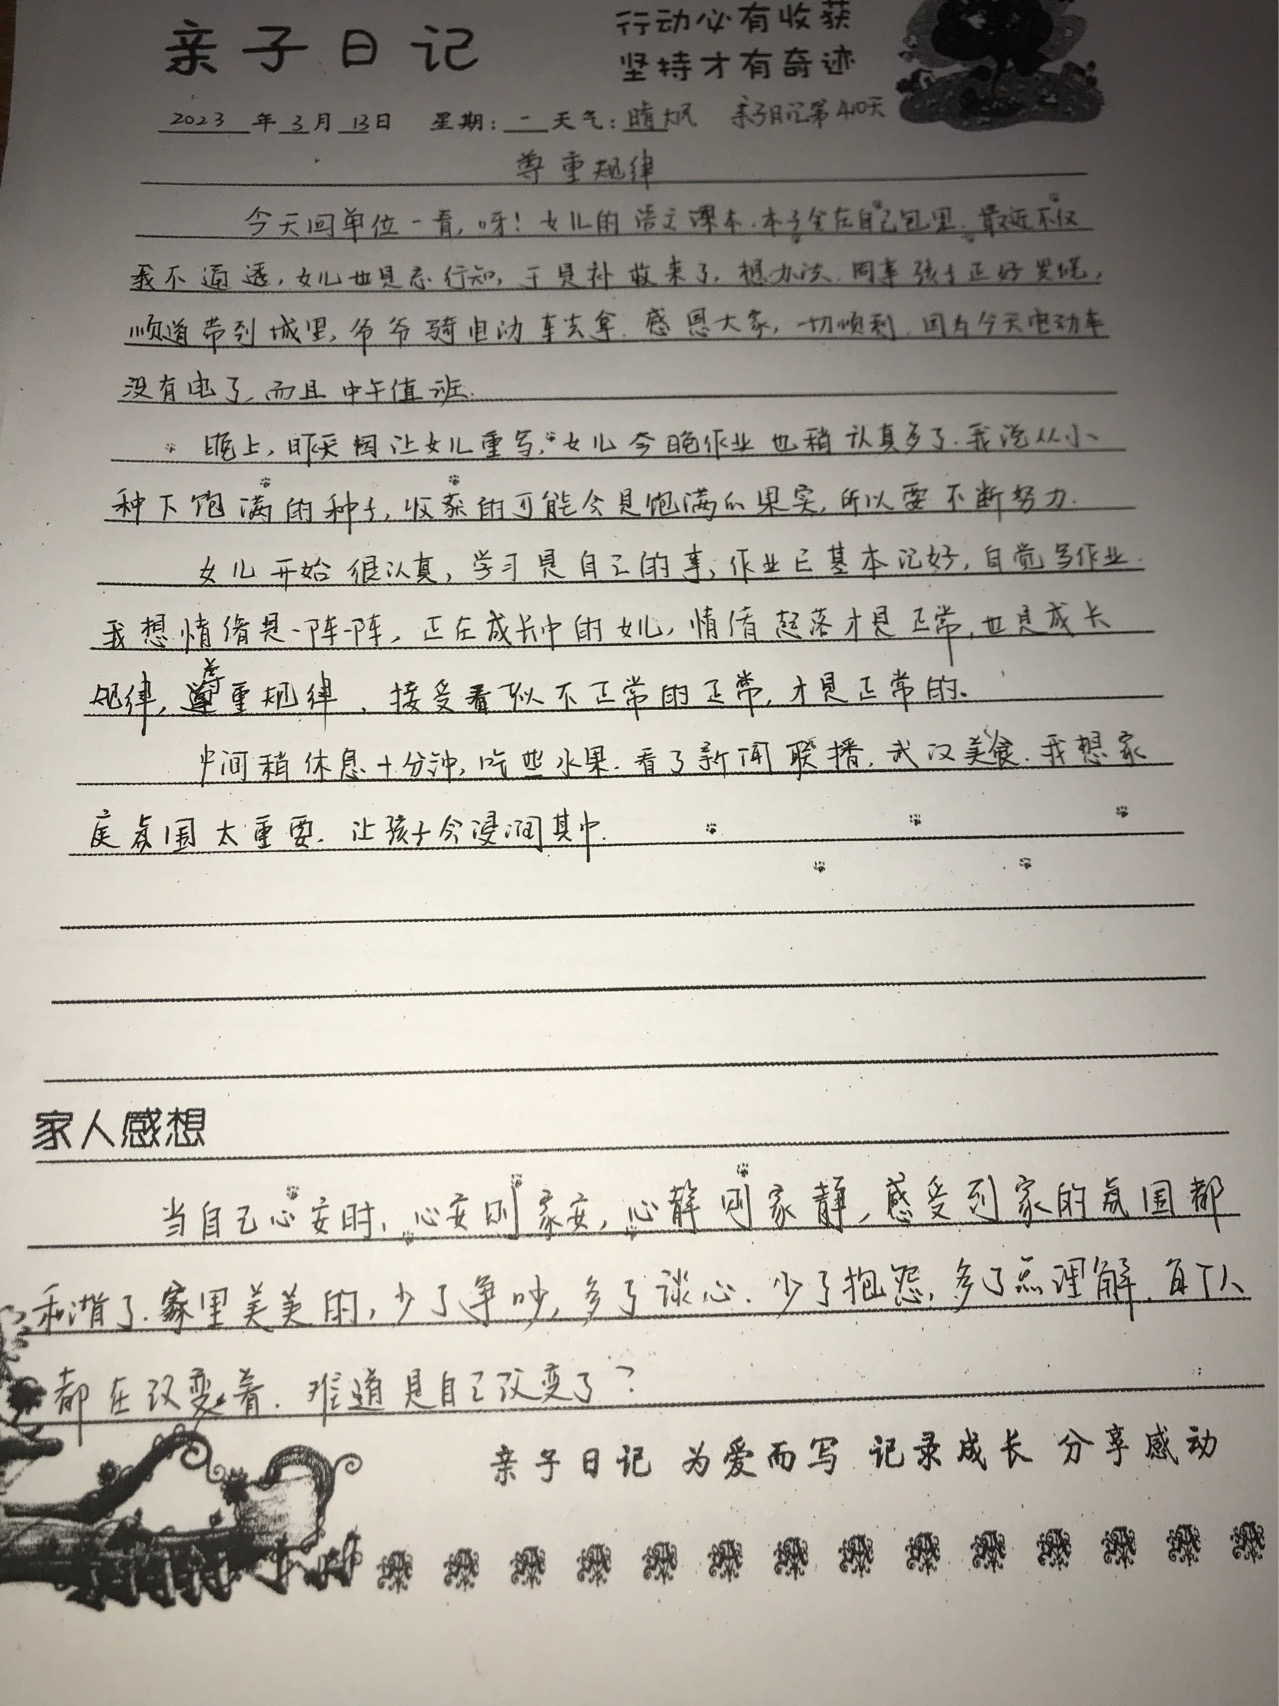 亲子日记
行动必有收获
坚持才有奇迹
2023 年 3 月 13 日 星期: 一 天气: 晴 亲子日记第410天
尊重规律
今天回单位一看,呀!女儿的语文课本.本子全在自己包里.最近不仅
我不通透,女儿也是忘行知,于是补救来了,想办法.同事孩子正好
顺道带到城里,爷爷骑电动车去拿.感恩大家,一切顺利.因为今天电动车
没有电了,而且中午值班.
晚上,昨天因让女儿重写,女儿今晚作业也稍认真多了.我说从小
种下饱满的种子,收获的可能会是饱满的果实,所以要不断努力.
女儿开始很认真,学习是自己的事,作业已基本记好,自觉写作业.
我想情绪是一阵一阵,正在成长中的女儿,情绪起落才是正常,也是成长
规律,尊重规律,接受看似不正常的正常,才是正常的。
中间稍休息十分钟,吃些水果.看了新闻联播,武汉美食.我想家
庭氛围太重要.让孩子今浸润其中.
家人感想
当自己心安时,心安则家安,心静则家静,感受到家的氛围都
和谐了.家里美美的,少了争吵,多了谈心.少了抱怨,多了点理解.每个人
都在改变着.难道是自己改变了?
亲子日记 为爱而写 记录成长 分享感动